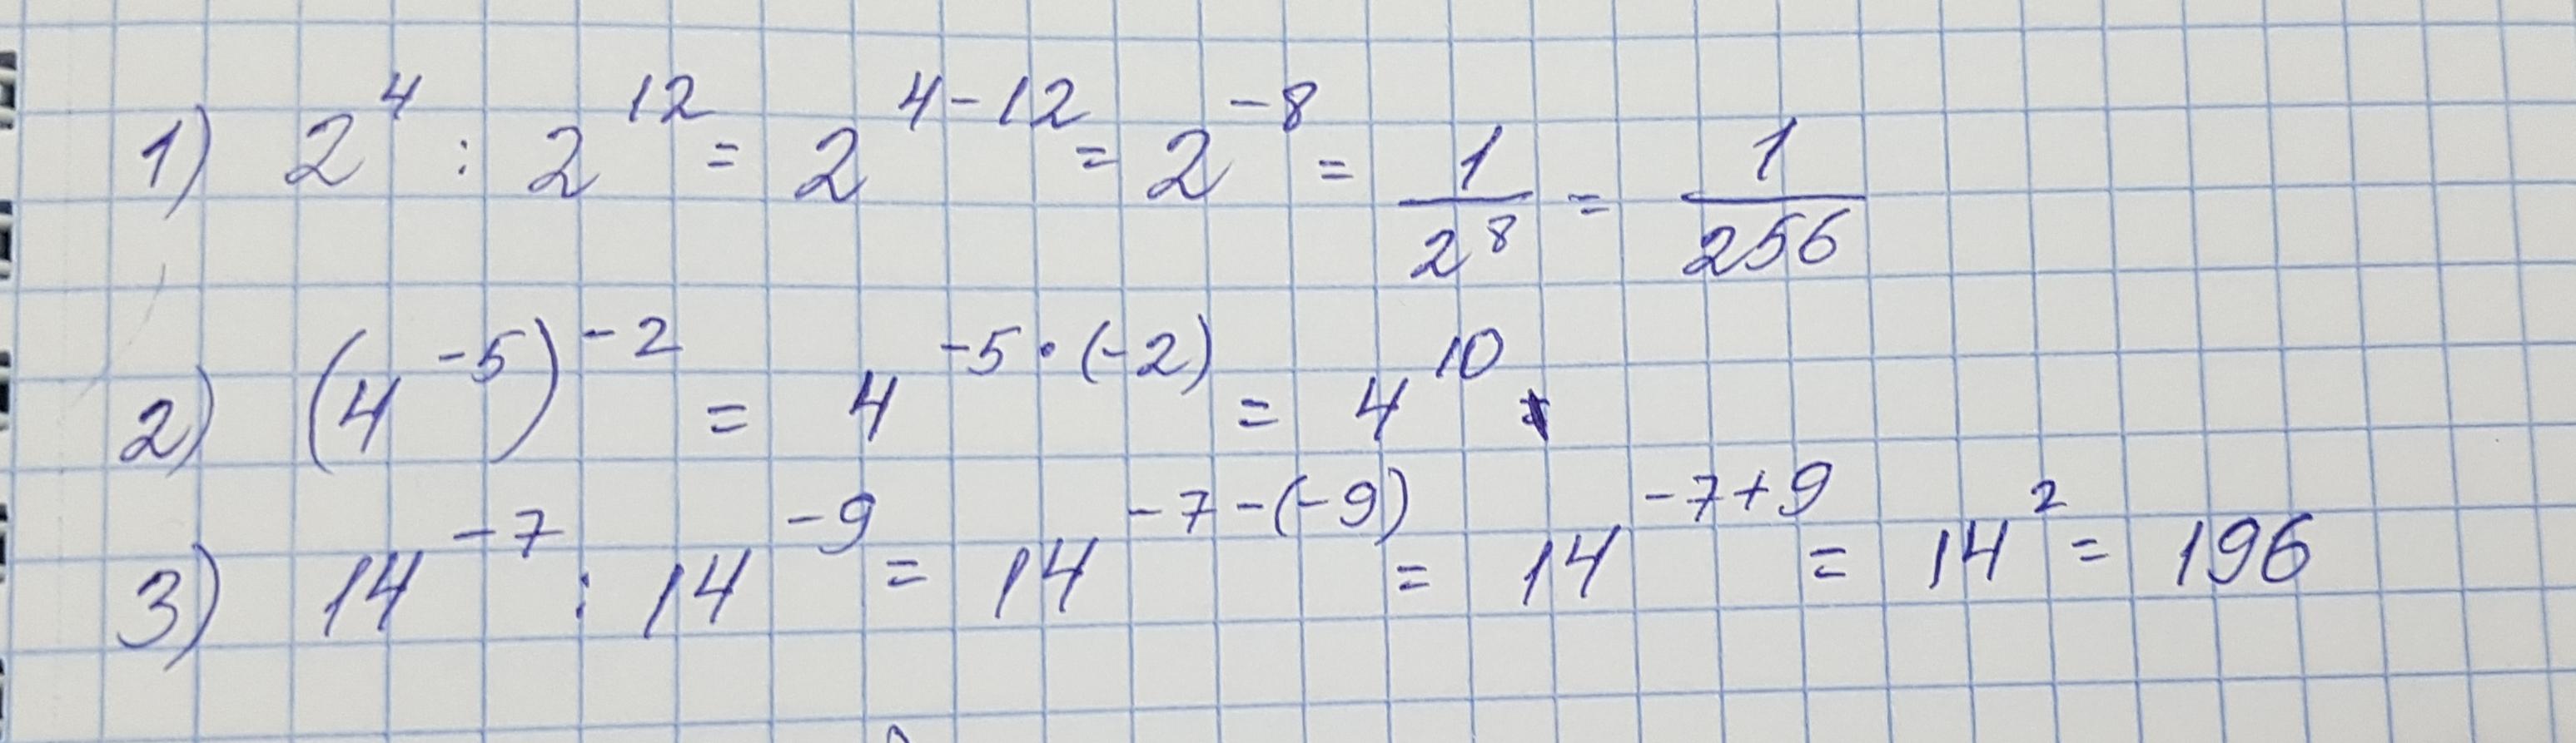 1) 2⁴ : 2¹² = 2⁴⁻¹² = 2⁻⁸ = 1/2⁸ = 1/256
2) (4⁻⁵)⁻² = 4^(-5·(-2)) = 4¹⁰
3) 14⁻⁷ : 14⁻⁹ = 14^(-7-(-9)) = 14⁻⁷⁺⁹ = 14² = 196